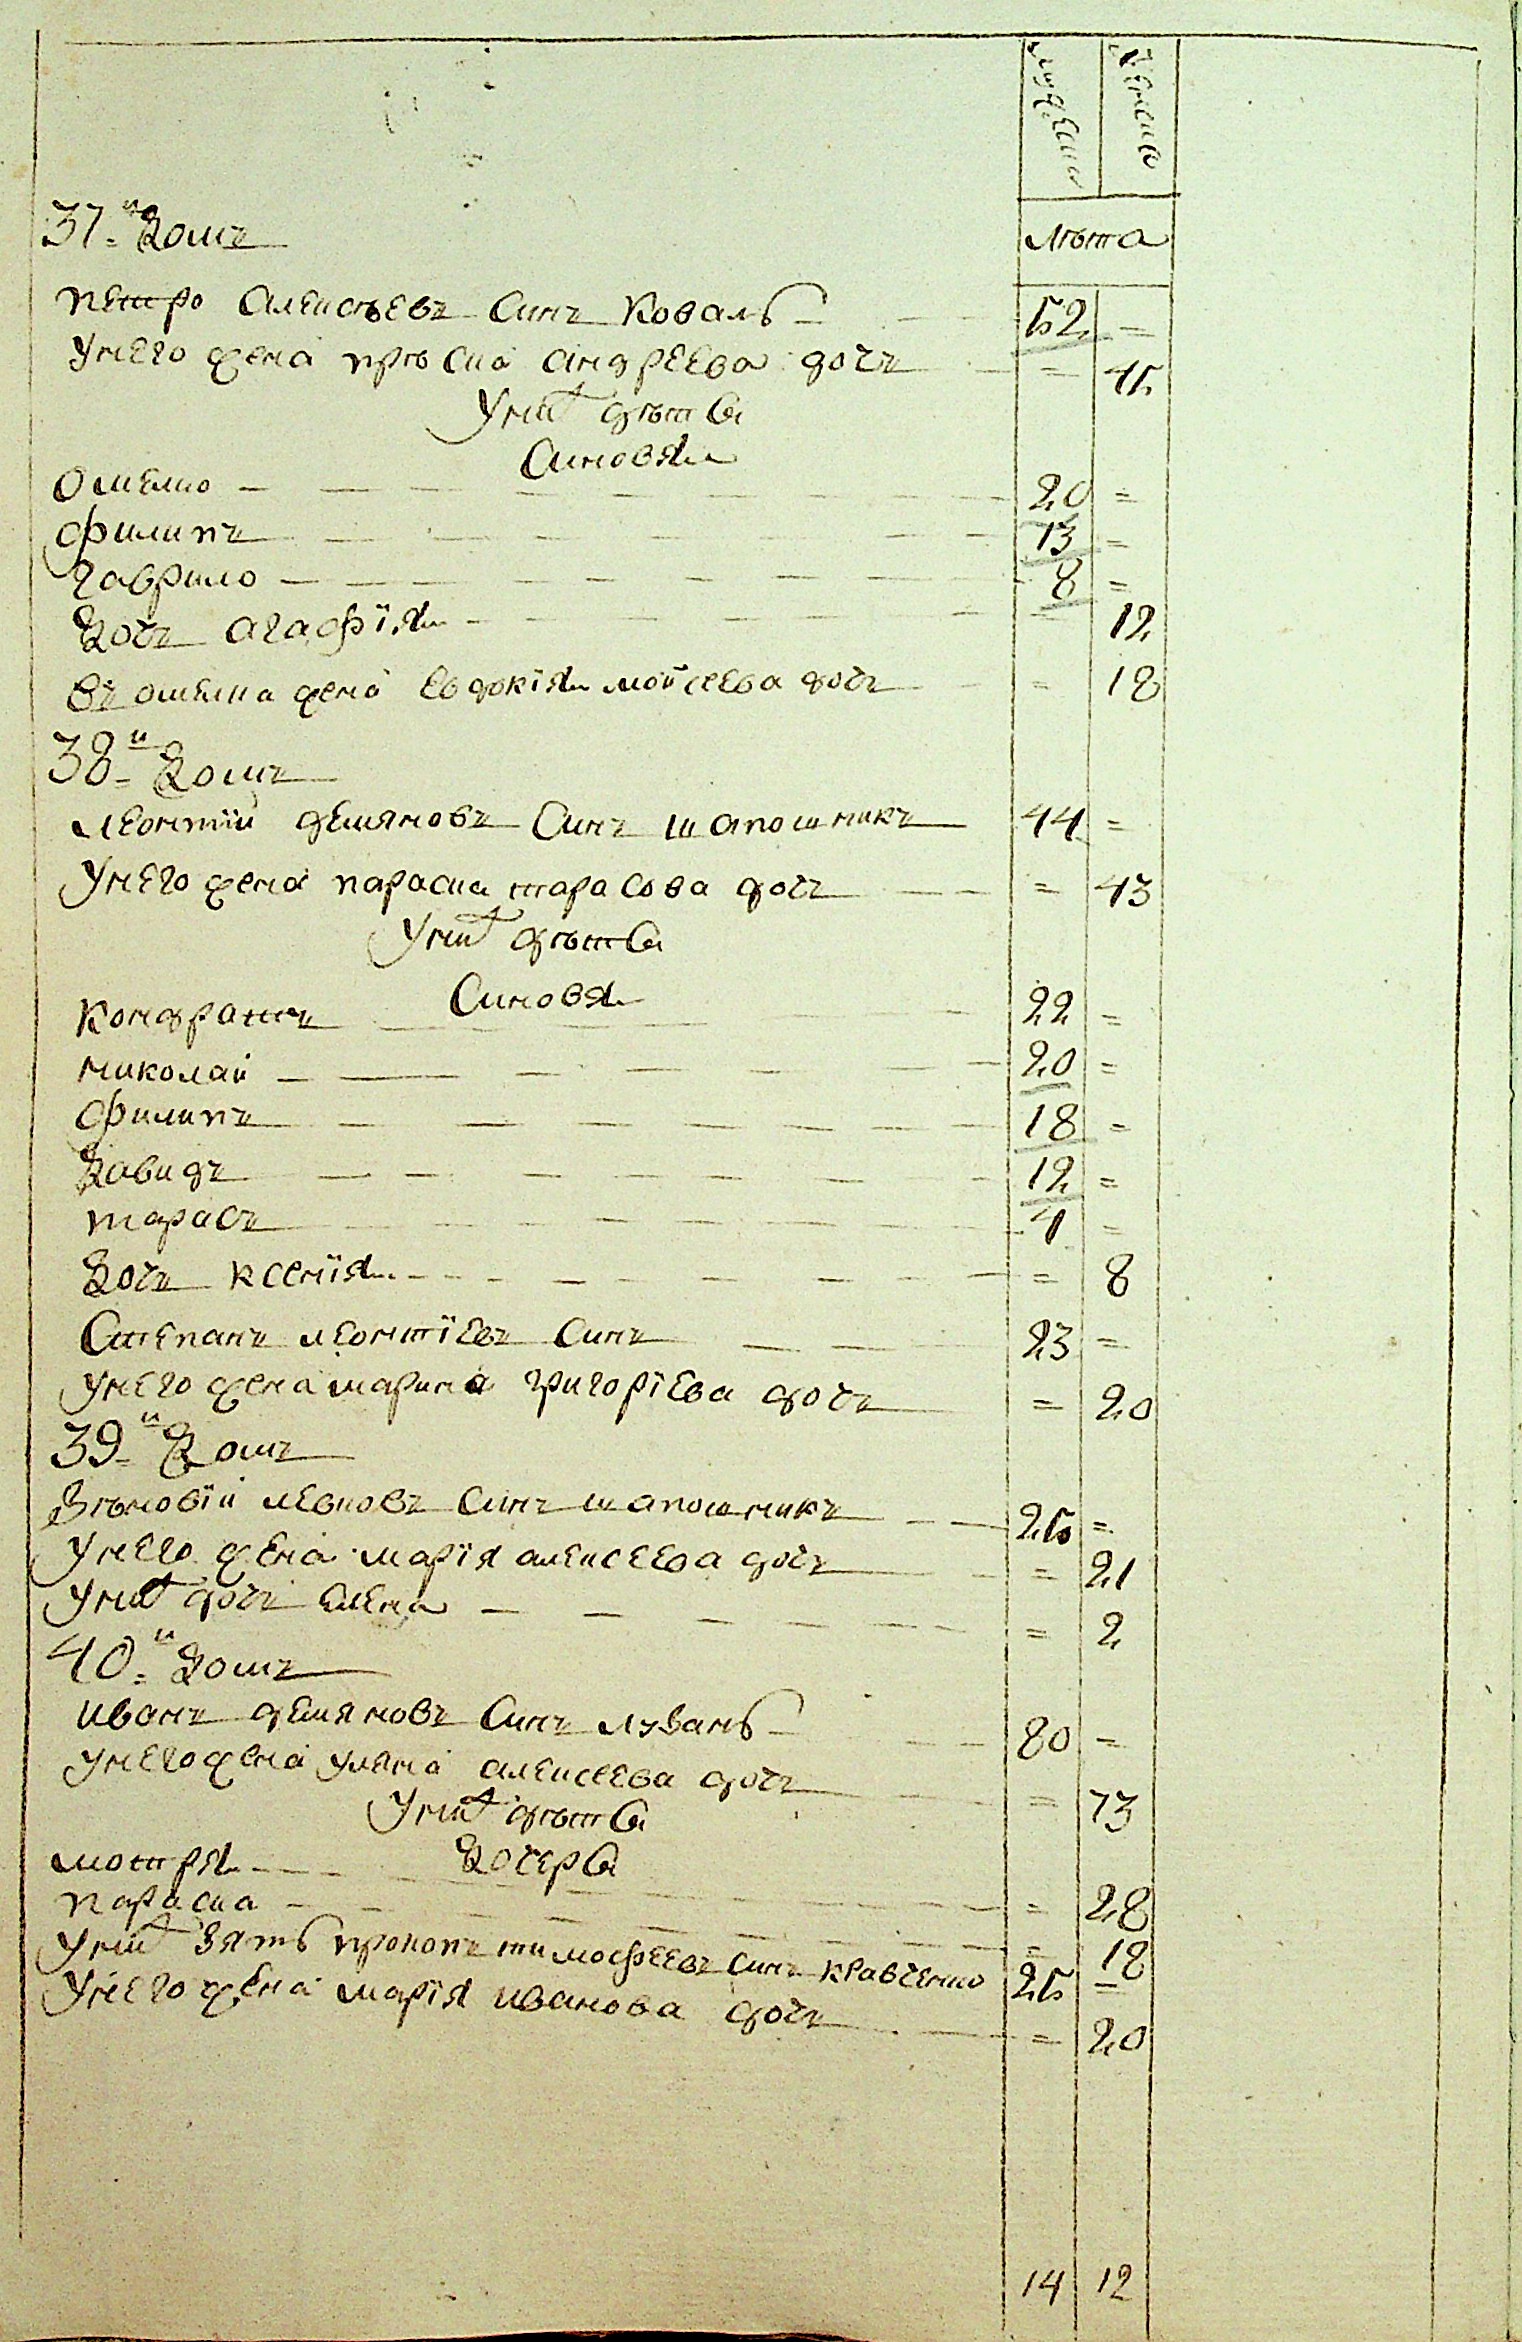 мужеска женска
37й домъ
лѣта
петро алексѣевъ синъ коваль 52 =
у него жена пріська андреева дочъ = 45
У нихъ дѣти
Синовя
Омелко 20 =
филипъ 13 =
гаврило 8 =
дочъ агафїя = 12
въ омелка жена евдокїя мойсеева дочъ = 18
38й домъ
леонтїй демяновъ синъ шапошникъ 44 =
у него жена параска тарасова дочъ = 43
У нихъ дѣти
Синовя
кондратъ 22 =
николай 20 =
филипъ 18 =
давидъ 12 =
тарасъ 4 =
дочъ ксенїя = 8
Степанъ леонтїевъ синъ 23 =
у него жена марина григорїева дочъ = 20
39й домъ
Зѣновїй левковъ синъ шапошникъ 25 =
у него жена марїя алексеева дочъ = 21
у нихъ дочъ елена = 2
40й домъ
иванъ демяновъ синъ лузань 80 =
у него жена уляна алексеева дочъ = 73
У нихъ дѣти
дочери
мотря = 28
параска = 18
у нихъ зять прокопъ тимофеевъ синъ кравченко 25 =
у него жена марїя иванова дочъ = 20
14 12